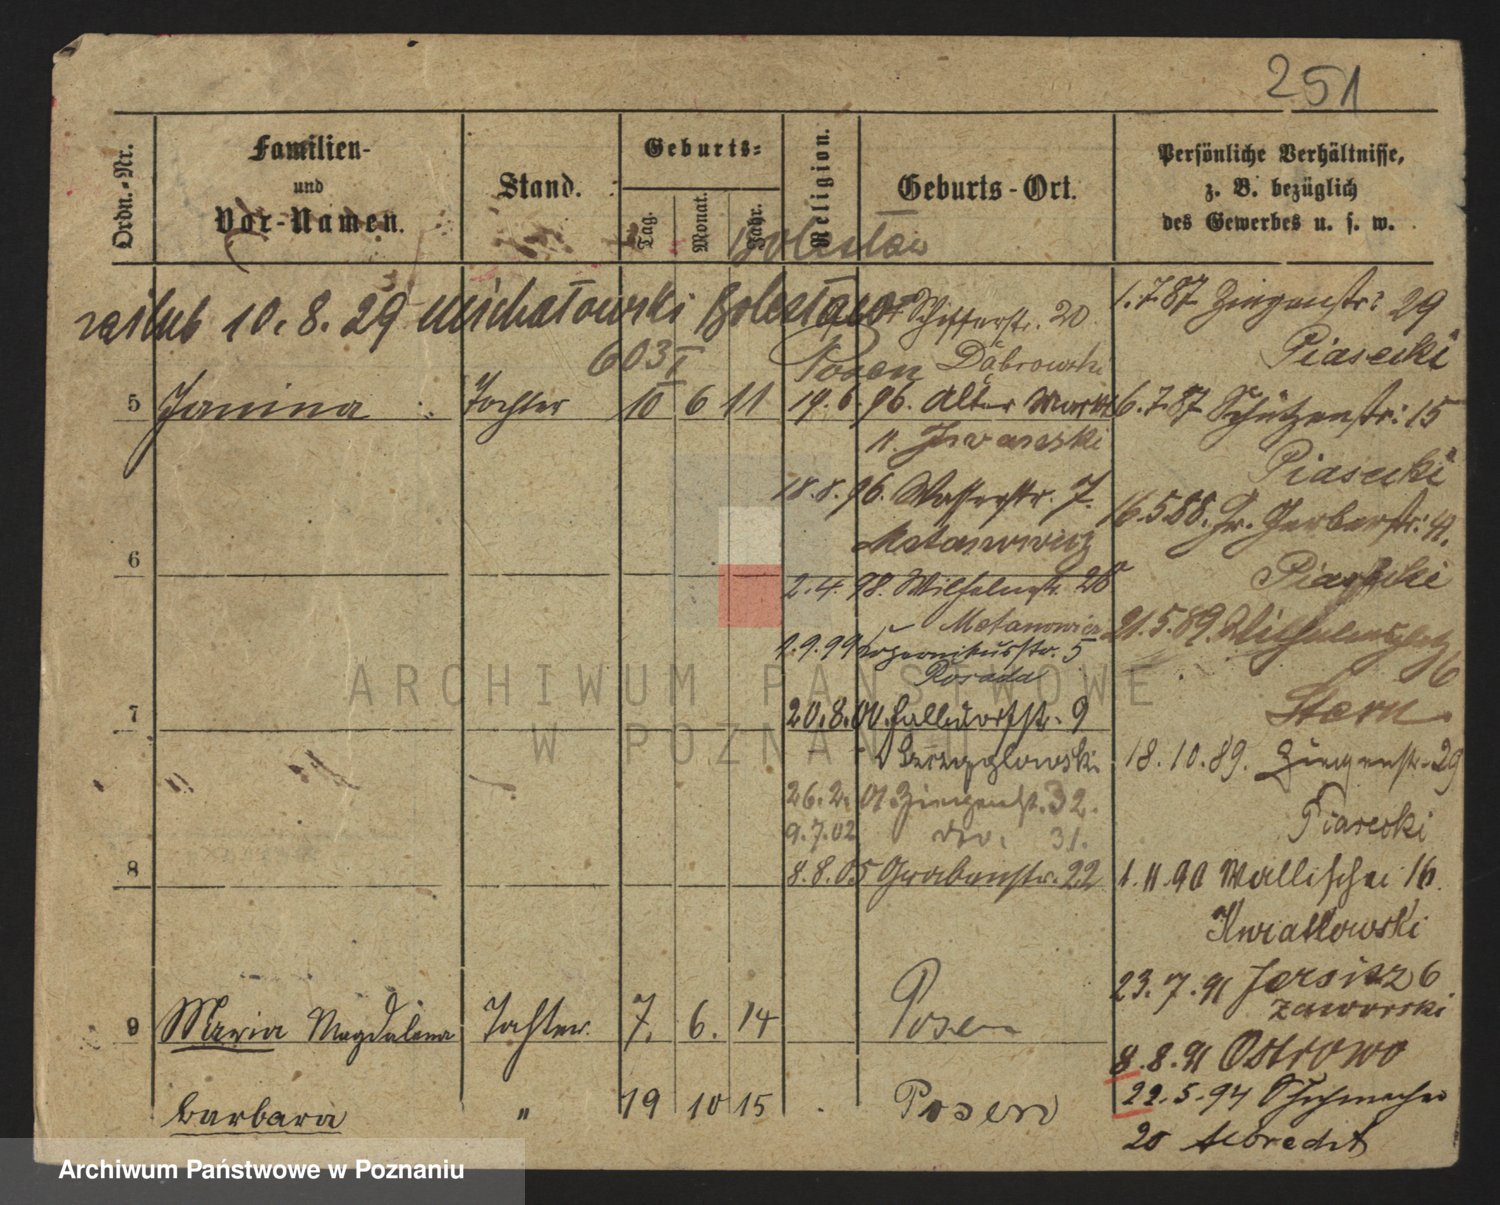 251
Ordn.-Nr.
Familien-
und
Vor-Namen.
Stand.
Geburts-
Tag.
Monat.
Jahr.
Religion.
Geburts-Ort.
Persönliche Verhältnisse,
z. B. bezüglich
des Gewerbes u. s. w.
Bolesław
zaślub 10. 8. 29 Michałowski Bolesław
603 I
Schifferstr. 20
Posen Dąbrowski
5 Janina Tochter 10 6 11
19. 6. 96. Alter Markt
11.
18. 8. 96. Wasserstr. 7.
Matanowicz
6
2. 4. 98. Wilhelmstr. 28
Matanowicz
1. 9. 99 5
Rosada
7
20. 8. 00. Halbdorfstr. 9
26. 2. 01. Ziegenstr. 32.
9. 7. 02 do. 31.
8
8. 8. 05 Grabenstr. 22
9 Maria Magdalena Tochter. 7. 6. 14 Posen
Barbara " 19 10 15 Posen
1. 7. 87 Ziegenstr: 29
Piasecki
6. 7. 87 Schützenstr: 15
Piasecki
16. 5. 88. Gr. Gerberstr:
Piasecki
21. 5. 89. Wilhelmsplatz
16
Stern
18. 10. 89. Ziegenstr. 29
Piasecki
1. 11. 90 Wallischei 16.
Kwiatkowski
23. 7. 91 Jersitz 6
Zaworski
8. 8. 91 Ostrowo
22. 5. 94
20
ARCHIWUM PAŃSTWOWE
W POZNANIU
Archiwum Państwowe w Poznaniu